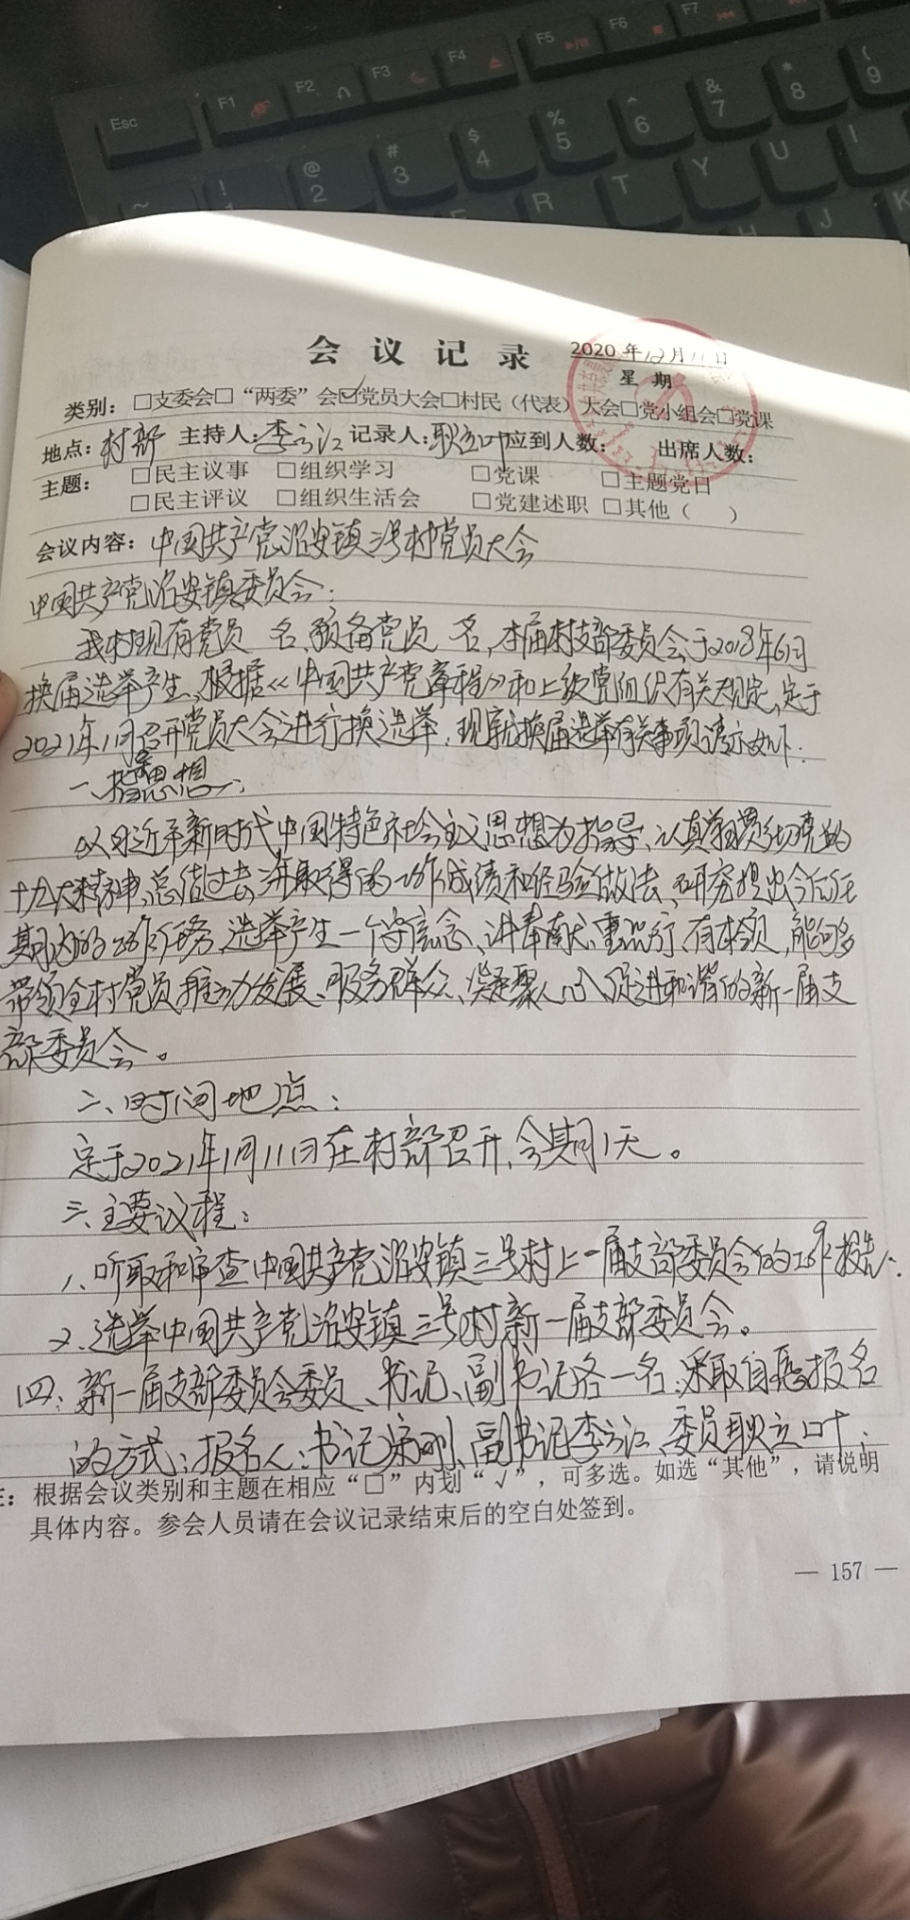 Esc F1 F2 F3 F4 F5 F6 F7
~ ! 1 @ 2 # 3 $ 4 % 5 ^ 6 & 7 * 8 ( 9
R T Y U I
H J K
会议记录 2020年12月11日
星期
类别：□支委会□“两委”会☑党员大会□村民（代表）大会□党小组会□党课
地点：村部 主持人：李 江 记录人：耿立叶 应到人数： 出席人数：
主题： □民主议事 □组织学习 □党课 □主题党日
□民主评议 □组织生活会 □党建述职 □其他（ ）
会议内容：中国共产党治安镇三号村党员大会
中国共产党治安镇委员会：
我村现有党员 名，预备党员 名，本届村支部委员会于2018年6月
换届选举产生，根据《中国共产党章程》和上级党组织有关规定，定于
2021年1月召开党员大会进行换选举，现就换届选举有关事项请示如下：
一、指导思想：
以习近平新时代中国特色社会主义思想为指导，认真学习贯彻党的
十九大精神，总结过去 年取得的工作成绩和经验做法，研究提出今后任
期内的工作任务，选举产生一个守信念、讲奉献、重品行、有本领，能够
带领全村党员推动发展、服务群众、凝聚人心、促进和谐的新一届支
部委员会。
二、时间地点：
定于2021年1月11日在村部召开，会期1天。
三、主要议程：
1、听取和审查中国共产党治安镇三号村上一届支部委员会的工作报告。
2、选举中国共产党治安镇三号村新一届支部委员会。
四、新一届支部委员会委员、书记、副书记各一名，采取自愿报名
的方式：报名人：书记 刚 副书记李 江 委员耿立叶，
注：根据会议类别和主题在相应“□”内划“√”，可多选。如选“其他”，请说明
具体内容。参会人员请在会议记录结束后的空白处签到。
— 157 —